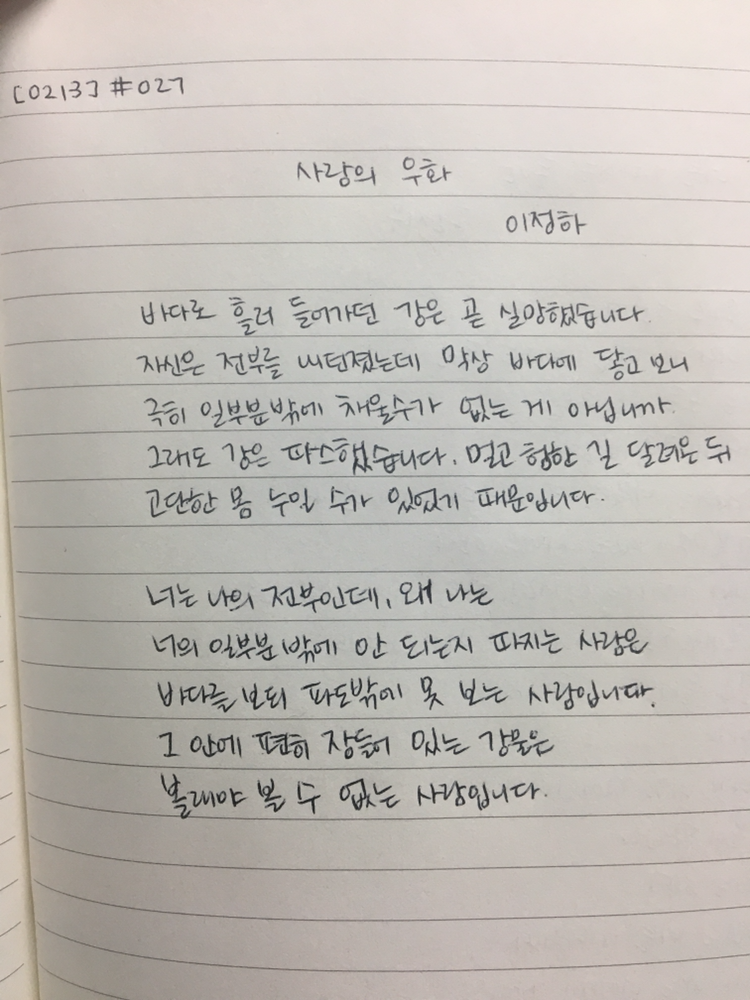 [0213] #027
사랑의 우화
이정하
바다로 흘러 들어가던 강은 곧 실망했습니다.
자신은 전부를 내던졌는데 막상 바다에 닿고 보니
극히 일부분밖에 채울수가 없는 게 아닙니까.
그래도 강은 따스했습니다. 멀고 험한 길 달려온 뒤
고단한 몸 누일 수가 있었기 때문입니다.
너는 나의 전부인데, 왜 나는
너의 일부분 밖에 안 되는지 따지는 사람은
바다를 보되 파도밖에 못 보는 사람입니다.
그 안에 편히 잠들어 있는 강물은
볼래야 볼 수 없는 사람입니다.